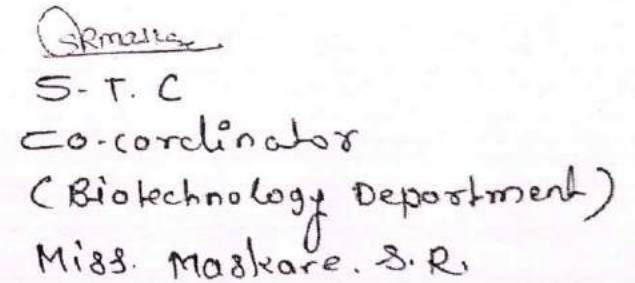 S-T. C
Co-cordinator
(Biotechnology Department)
Miss. Maskare. S.R.